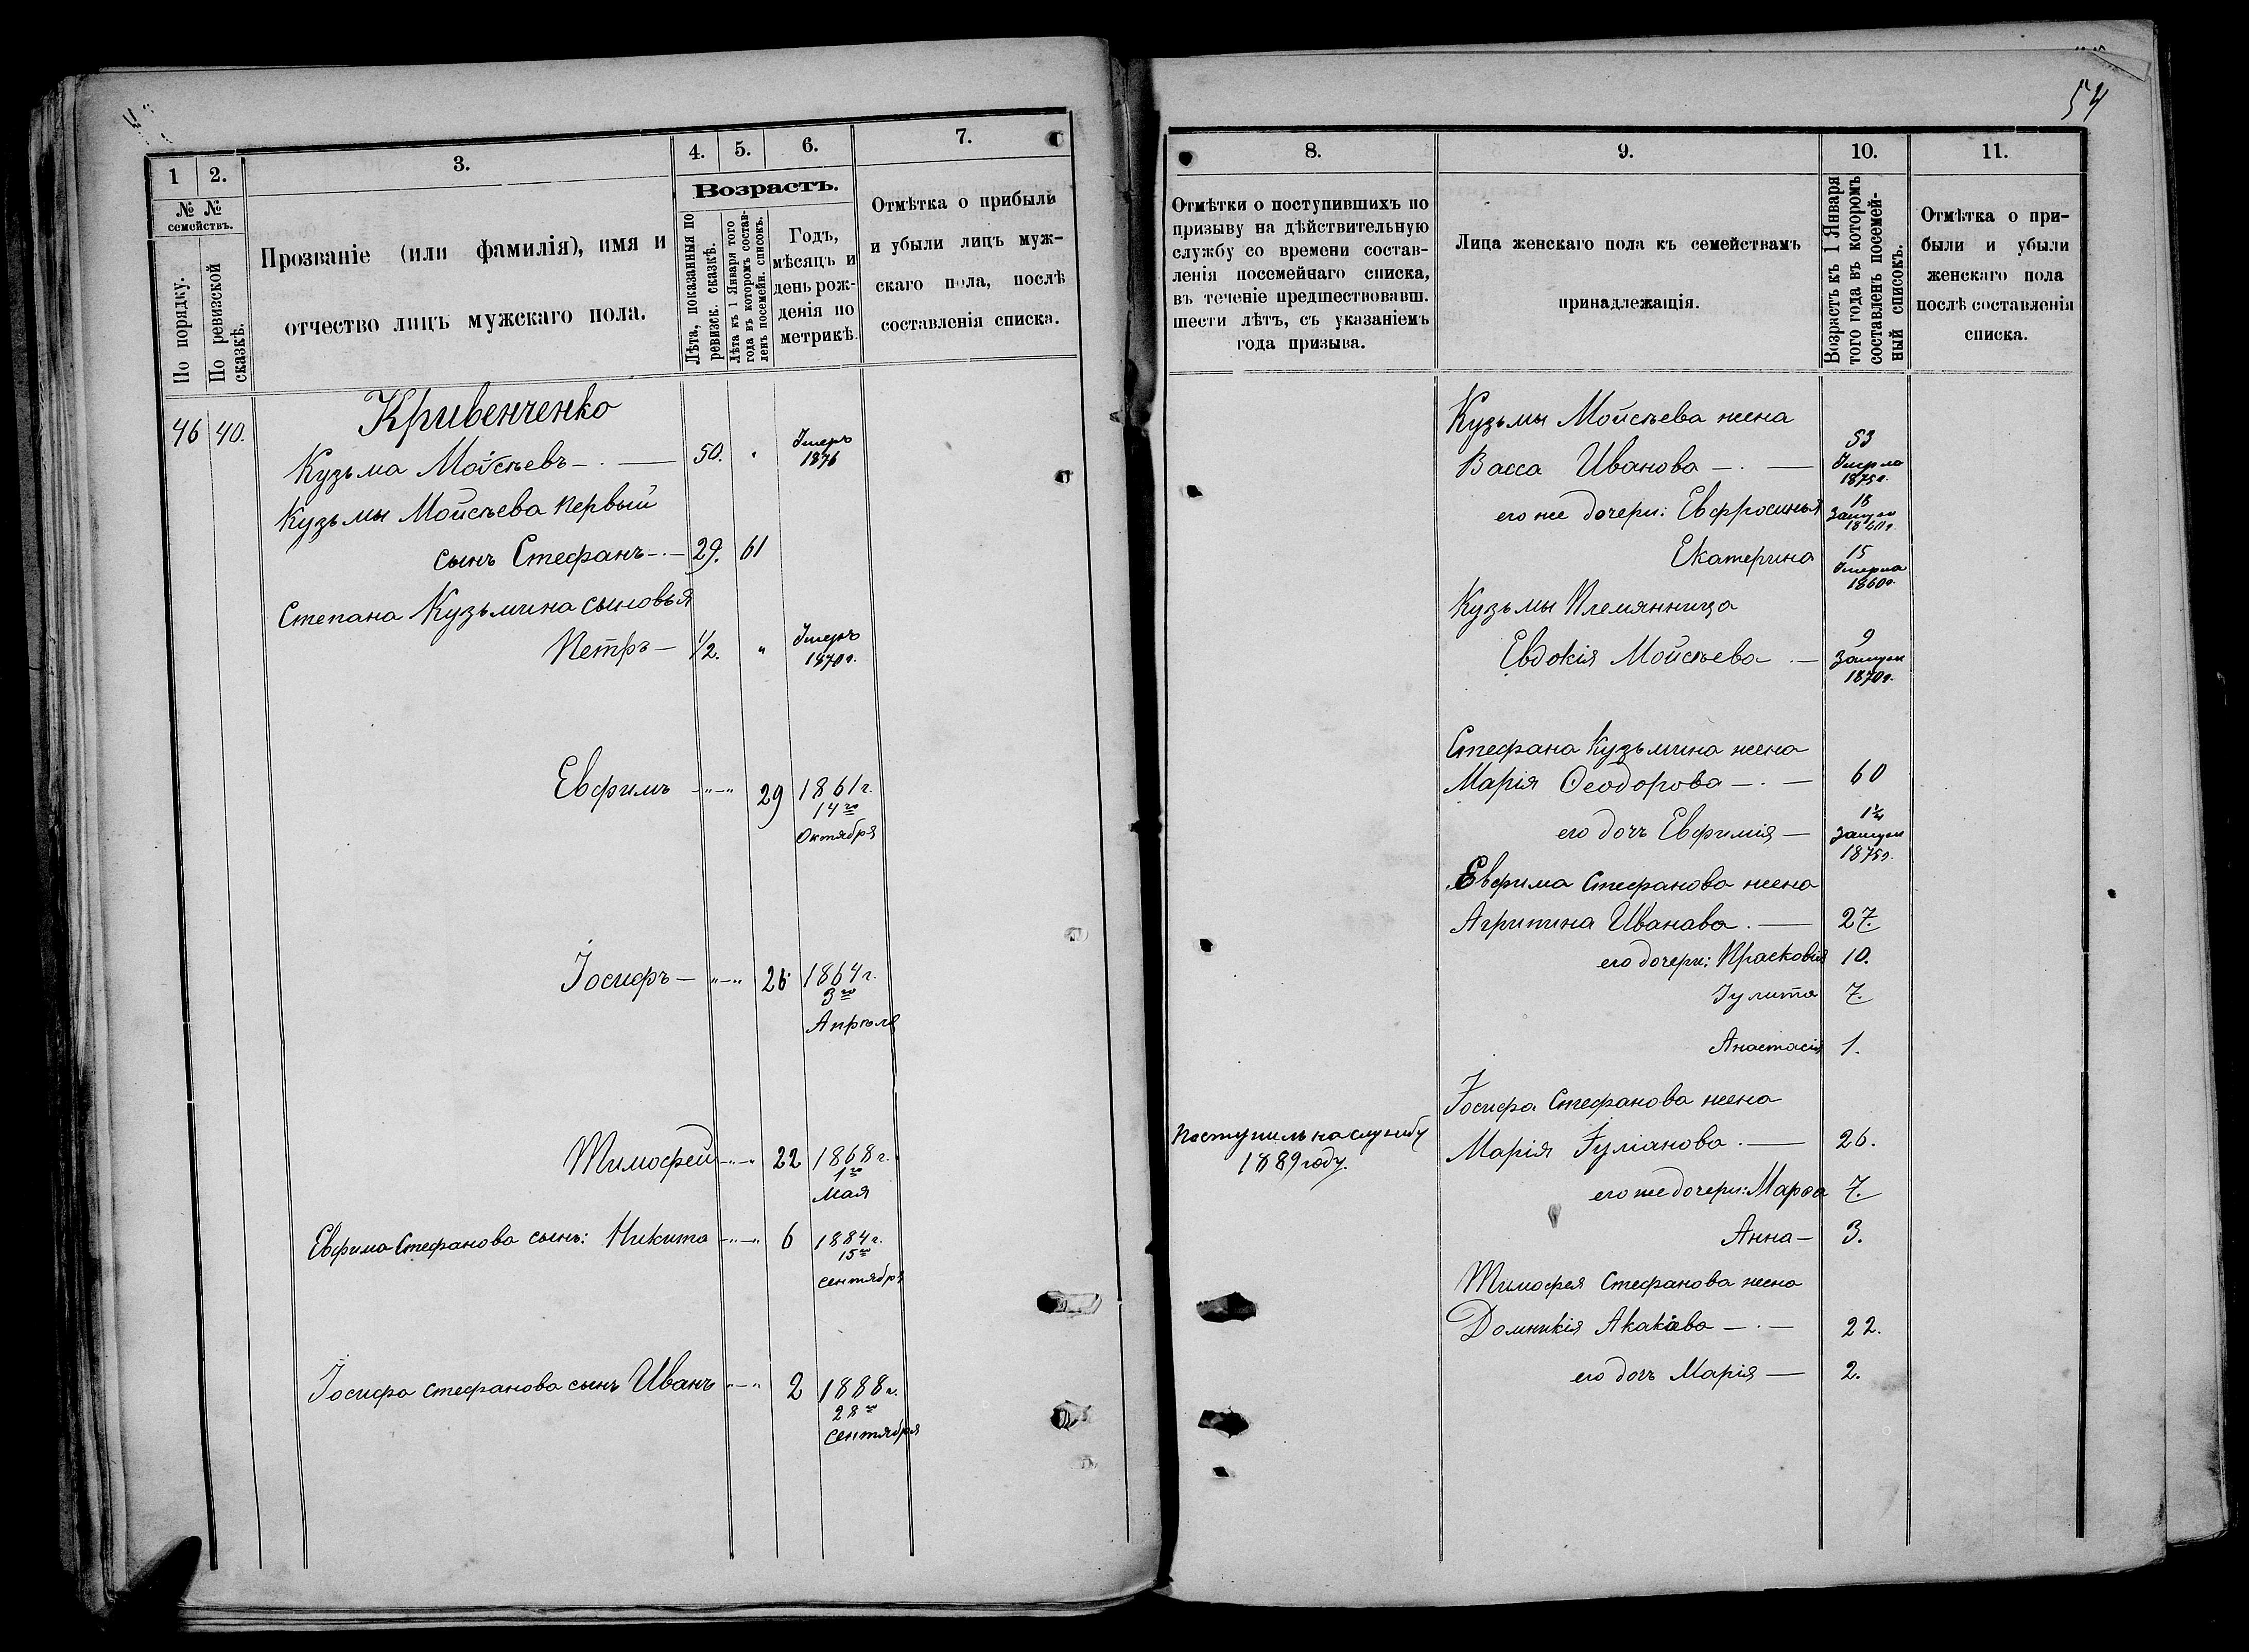 54
1
2.
3.
4.
5.
6.
7.
№ №
семействъ.
По порядку.
По ревизской сказкѣ.
Прозваніе (или фамилія), имя и
отчество лицъ мужскаго пола.
Возрастъ.
Лѣта, показанныя по ревизск. сказкѣ.
Лѣта къ 1 Января того года въ которомъ составленъ посемейн. списокъ.
Годъ,
мѣсяцъ и
день рож-
денія по
метрикѣ.
Отмѣтка о прибыли
и убыли лицъ муж-
скаго пола, послѣ
составленія списка.
46 40.
Кривенченко
Кузьма Мойсѣевъ — . — 50. " Умеръ
1876
Кузьмы Мойсѣева первый
сынъ Стефанъ — . — 29. 61
Степана Кузьмина сыновья
Петръ — 1/2. " Умеръ
1870г.
Евфимъ —"—" 29 1861г.
14го
Октября
Іосифъ — "—" 26 1864г.
3го
Апрѣля
Тимофей —"—" 22 1868г.
1го
Мая
Евфима Стефанова сынъ: Никита —"—" 6 1884г.
15го
сентября
Іосифа Стефанова сынъ Иванъ "—" 2 1888г.
28го
сентября
8.
9.
10.
11.
Отмѣтки о поступившихъ по
призыву на дѣйствительную
службу со времени состав-
ленія посемейнаго списка,
въ теченіе предшествовавш.
шести лѣтъ, съ указаніемъ
года призыва.
Лица женскаго пола къ семействамъ
принадлежащія.
Возрастъ къ 1 Января
того года въ которомъ
составленъ посемей-
ный списокъ.
Отмѣтка о при-
были и убыли
женскаго пола
послѣ составленія
списка.
Кузьмы Мойсѣева жена
Васса Иванова — . — 53
Умерла
1875г.
его же дочери: Евфросинья 18
Замуж
1860г.
Екатерина 15
Умерла
1860г.
Кузьмы Племянница
Евдокія Мойсѣева . — 9
Замуж
1870г.
Стефана Кузьмина жена
Марія Ѳеодорова — . — 60
его дочь Евфимія —
замуж
1875г.
Евфима Стефанова жена
Агрипина Иванава . — 27.
его дочери: Прасковія 10.
Іулита 7.
Анастасія 1.
Іосифа Стефанова жена
Поступилъ на службу
1889 году.
Марія Іуліанова . — 26.
его же дочери: Марѳа 7.
Анна — 3.
Тимофея Стефанова жена
Домникія Акакіева — . — 22.
его дочь Марія — 2.